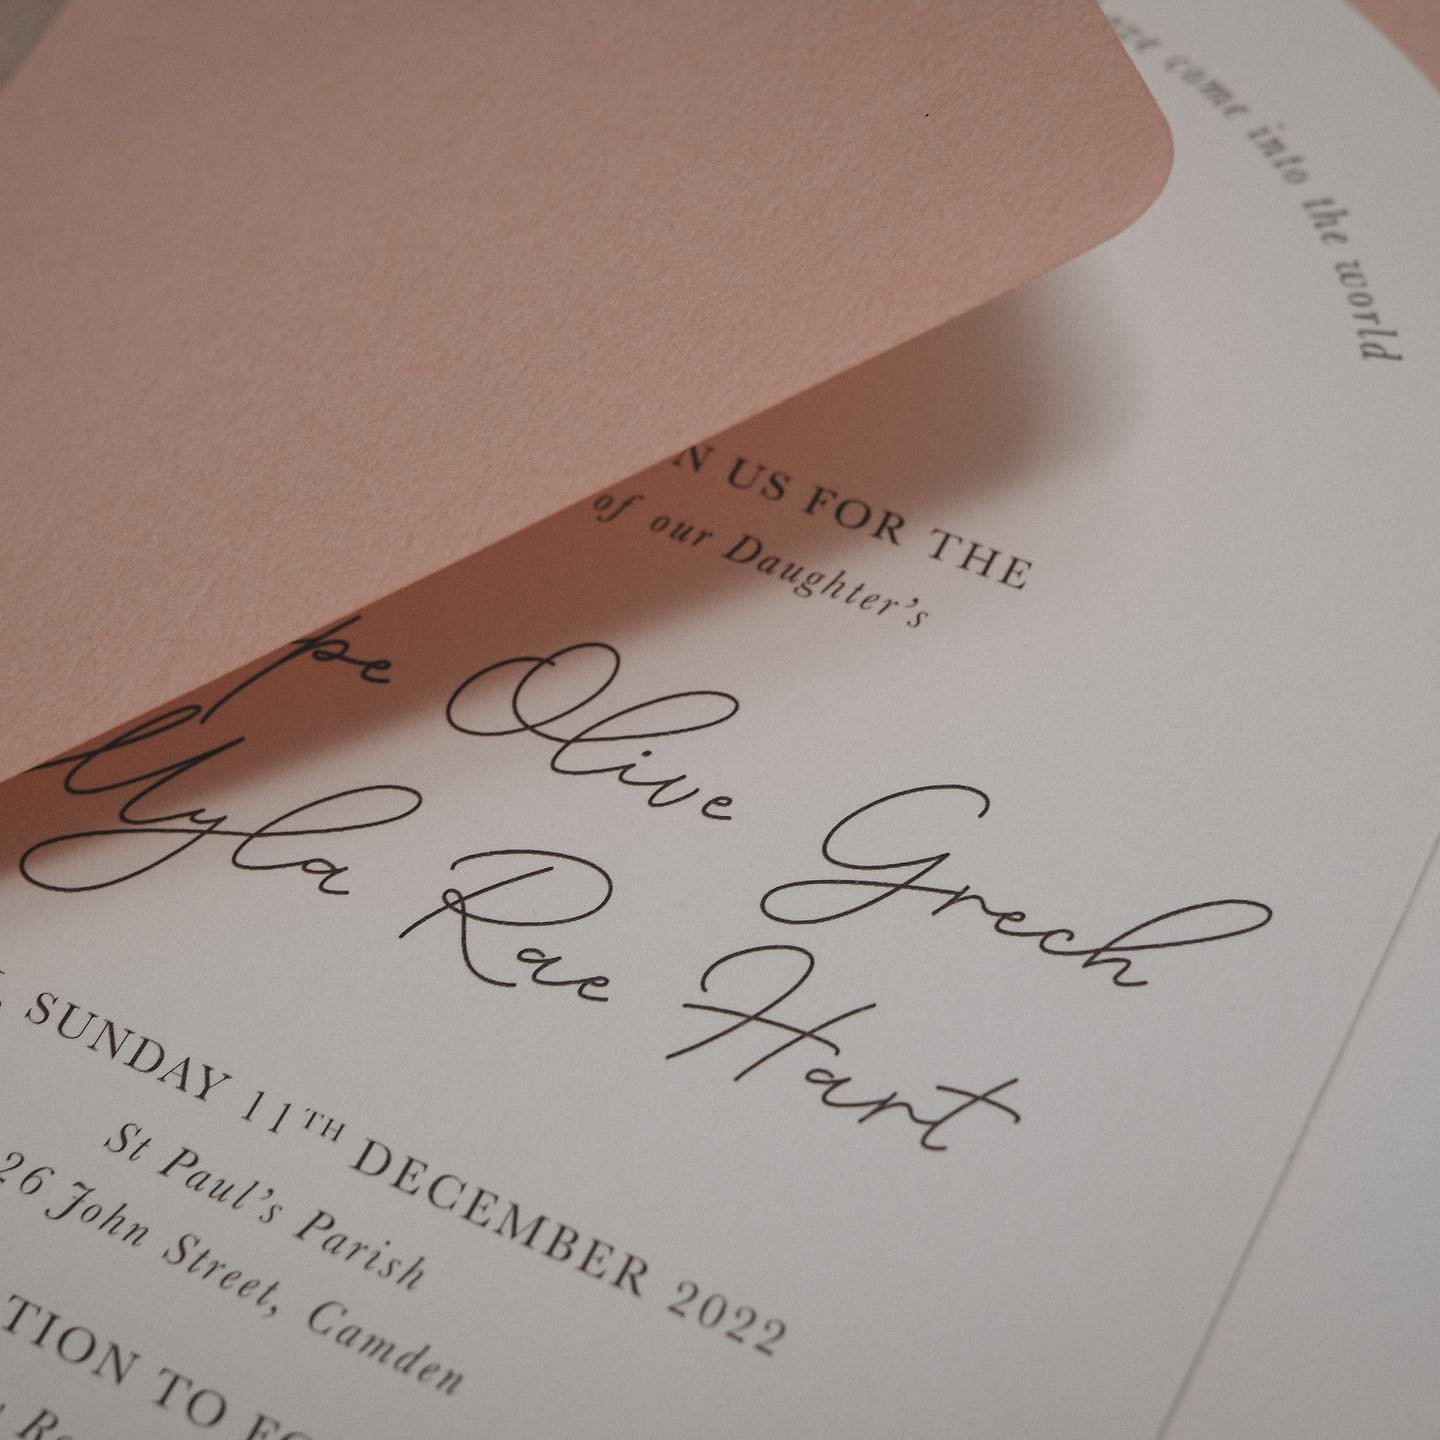 come into the world
US FOR THE
of our Daughter's
Olive Grech
Myla Rae Hart
SUNDAY 11TH DECEMBER 2022
St Paul's Parish
26 John Street, Camden
TO